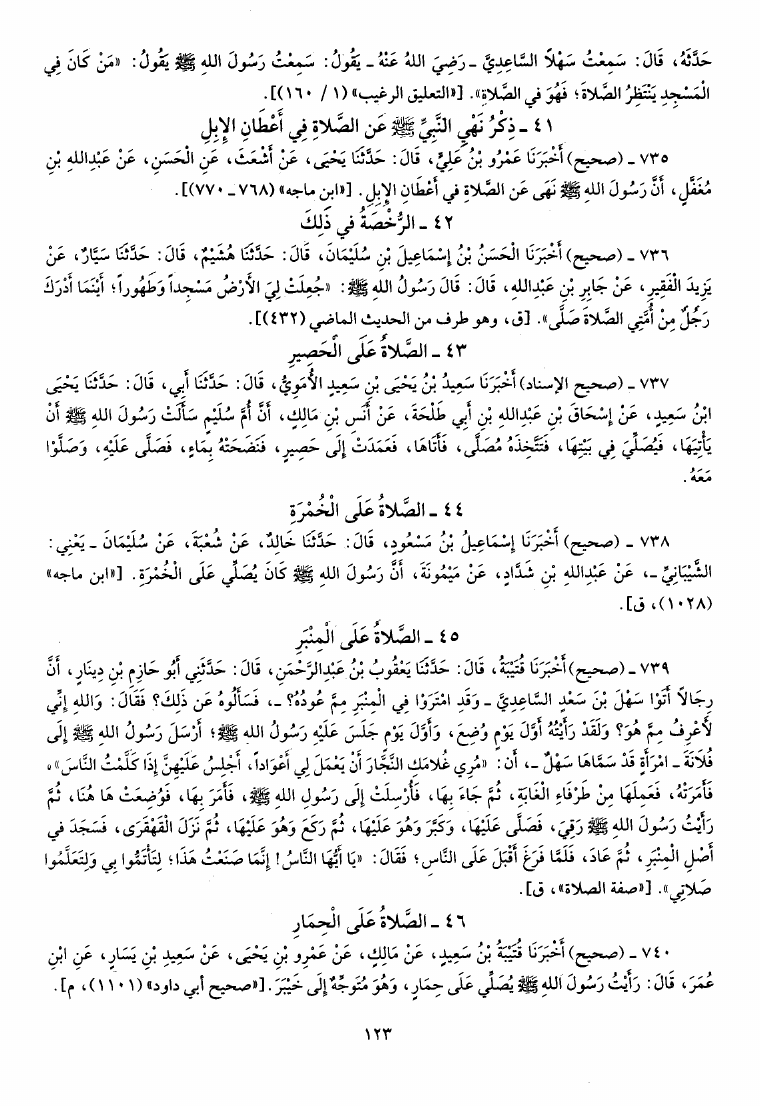 حَدَّثَهُ، قَالَ: سَمِعْتُ سَهْلاً السَّاعِدِيَّ ـ رَضِيَ اللهُ عَنْهُ ـ يَقُولُ: سَمِعْتُ رَسُولَ اللهِ ﷺ يَقُولُ: «مَنْ كَانَ فِي
الْمَسْجِدِ يَنْتَظِرُ الصَّلاَةَ؛ فَهُوَ فِي الصَّلاَةِ». [«التعليق الرغيب» (١ / ١٦٠)].
٤١ ـ ذِكْرُ نَهْيِ النَّبِيِّ ﷺ عَنِ الصَّلاَةِ فِي أَعْطَانِ الإِبِلِ
٧٣٥ ـ (صحيح) أَخْبَرَنَا عَمْرُو بْنُ عَلِيٍّ، قَالَ: حَدَّثَنَا يَحْيَى، عَنْ أَشْعَثَ، عَنِ الْحَسَنِ، عَنْ عَبْدِاللهِ بْنِ
مُغَفَّلٍ، أَنَّ رَسُولَ اللهِ ﷺ نَهَى عَنِ الصَّلاَةِ فِي أَعْطَانِ الإِبِلِ. [«ابن ماجه» (٧٦٨ ـ ٧٧٠)].
٤٢ ـ الرُّخْصَةُ فِي ذَلِكَ
٧٣٦ ـ (صحيح) أَخْبَرَنَا الْحَسَنُ بْنُ إِسْمَاعِيلَ بْنِ سُلَيْمَانَ، قَالَ: حَدَّثَنَا هُشَيْمٌ، قَالَ: حَدَّثَنَا سَيَّارٌ، عَنْ
يَزِيدَ الْفَقِيرِ، عَنْ جَابِرِ بْنِ عَبْدِاللهِ، قَالَ: قَالَ رَسُولُ اللهِ ﷺ: «جُعِلَتْ لِيَ الأَرْضُ مَسْجِداً وَطَهُوراً؛ أَيْنَمَا أَدْرَكَ
رَجُلٌ مِنْ أُمَّتِي الصَّلاَةَ صَلَّى». [ق، وهو طرف من الحديث الماضي (٤٣٢)].
٤٣ ـ الصَّلاَةُ عَلَى الْحَصِيرِ
٧٣٧ ـ (صحيح الإسناد) أَخْبَرَنَا سَعِيدُ بْنُ يَحْيَى بْنِ سَعِيدٍ الأُمَوِيُّ، قَالَ: حَدَّثَنَا أَبِي، قَالَ: حَدَّثَنَا يَحْيَى
ابْنُ سَعِيدٍ، عَنْ إِسْحَاقَ بْنِ عَبْدِاللهِ بْنِ أَبِي طَلْحَةَ، عَنْ أَنَسِ بْنِ مَالِكٍ، أَنَّ أُمَّ سُلَيْمٍ سَأَلَتْ رَسُولَ اللهِ ﷺ أَنْ
يَأْتِيَهَا، فَيُصَلِّيَ فِي بَيْتِهَا، فَتَتَّخِذَهُ مُصَلًّى، فَأَتَاهَا، فَعَمِدَتْ إِلَى حَصِيرٍ، فَنَضَحَتْهُ بِمَاءٍ، فَصَلَّى عَلَيْهِ، وَصَلَّوْا
مَعَهُ.
٤٤ ـ الصَّلاَةُ عَلَى الْخُمْرَةِ
٧٣٨ ـ (صحيح) أَخْبَرَنَا إِسْمَاعِيلُ بْنُ مَسْعُودٍ، قَالَ: حَدَّثَنَا خَالِدٌ، عَنْ شُعْبَةَ، عَنْ سُلَيْمَانَ ـ يَعْنِي:
الشَّيْبَانِيَّ ـ، عَنْ عَبْدِاللهِ بْنِ شَدَّادٍ، عَنْ مَيْمُونَةَ، أَنَّ رَسُولَ اللهِ ﷺ كَانَ يُصَلِّي عَلَى الْخُمْرَةِ. [«ابن ماجه»
(١٠٢٨)، ق].
٤٥ ـ الصَّلاَةُ عَلَى الْمِنْبَرِ
٧٣٩ ـ (صحيح) أَخْبَرَنَا قُتَيْبَةُ، قَالَ: حَدَّثَنَا يَعْقُوبُ بْنُ عَبْدِالرَّحْمَنِ، قَالَ: حَدَّثَنِي أَبُو حَازِمِ بْنِ دِينَارٍ، أَنَّ
رِجَالاً أَتَوْا سَهْلَ بْنَ سَعْدٍ السَّاعِدِيَّ ـ وَقَدِ امْتَرَوْا فِي الْمِنْبَرِ مِمَّ عُودُهُ؟ ـ، فَسَأَلُوهُ عَنْ ذَلِكَ؟ فَقَالَ: وَاللهِ إِنِّي
لأَعْرِفُ مِمَّ هُوَ؟ وَلَقَدْ رَأَيْتُهُ أَوَّلَ يَوْمٍ وُضِعَ، وَأَوَّلَ يَوْمٍ جَلَسَ عَلَيْهِ رَسُولُ اللهِ ﷺ؛ أَرْسَلَ رَسُولُ اللهِ ﷺ إِلَى
فُلاَنَةَ ـ امْرَأَةٍ قَدْ سَمَّاهَا سَهْلٌ ـ، أن: «مُرِي غُلاَمَكِ النَّجَّارَ أَنْ يَعْمَلَ لِي أَعْوَاداً، أَجْلِسُ عَلَيْهِنَّ إِذَا كَلَّمْتُ النَّاسَ»،
فَأَمَرَتْهُ، فَعَمِلَهَا مِنْ طَرْفَاءِ الْغَابَةِ، ثُمَّ جَاءَ بِهَا، فَأُرْسِلَتْ إِلَى رَسُولِ اللهِ ﷺ، فَأَمَرَ بِهَا، فَوُضِعَتْ هَا هُنَا، ثُمَّ
رَأَيْتُ رَسُولَ اللهِ ﷺ رَقِيَ، فَصَلَّى عَلَيْهَا، وَكَبَّرَ وَهُوَ عَلَيْهَا، ثُمَّ رَكَعَ وَهُوَ عَلَيْهَا، ثُمَّ نَزَلَ الْقَهْقَرَى، فَسَجَدَ فِي
أَصْلِ الْمِنْبَرِ، ثُمَّ عَادَ، فَلَمَّا فَرَغَ أَقْبَلَ عَلَى النَّاسِ؛ فَقَالَ: «يَا أَيُّهَا النَّاسُ! إِنَّمَا صَنَعْتُ هَذَا؛ لِتَأْتَمُّوا بِي وَلِتَعَلَّمُوا
صَلاَتِي». [«صفة الصلاة»، ق].
٤٦ ـ الصَّلاَةُ عَلَى الْحِمَارِ
٧٤٠ ـ (صحيح) أَخْبَرَنَا قُتَيْبَةُ بْنُ سَعِيدٍ، عَنْ مَالِكٍ، عَنْ عَمْرِو بْنِ يَحْيَى، عَنْ سَعِيدِ بْنِ يَسَارٍ، عَنِ ابْنِ
عُمَرَ، قَالَ: رَأَيْتُ رَسُولَ اللهِ ﷺ يُصَلِّي عَلَى حِمَارٍ، وَهُوَ مُتَوَجِّهٌ إِلَى خَيْبَرَ. [«صحيح أبي داود» (١١٠١)، م].
١٢٣